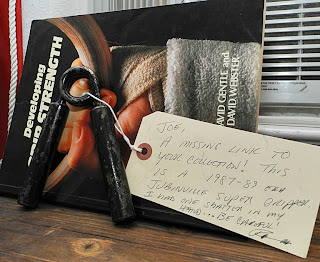 Developing
GRIP STRENGTH
DAVID GENTLE and
DAVID WEBSTER
JOE,
A MISSING LINK TO
YOUR COLLECTION! THIS
IS A 1987-89 ERA
JUBINVILLE SUPER GRIPPER
I HAD ONE SHATTER IN MY
HAND... BE CAREFUL!